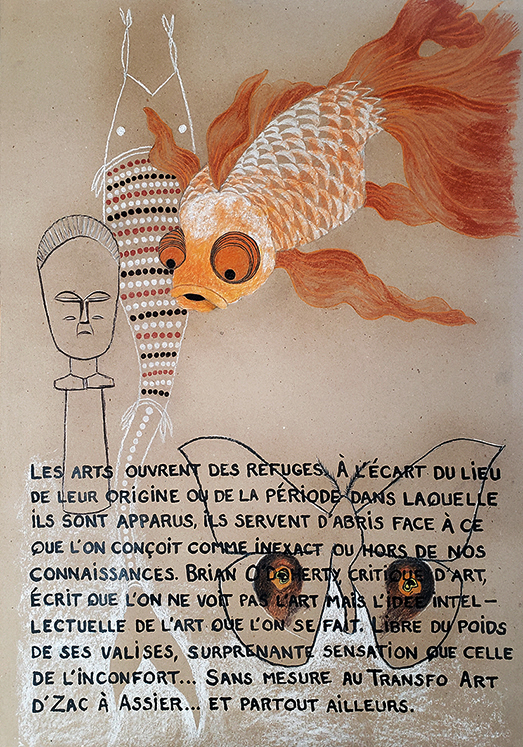 LES ARTS OUVRENT DES REFUGES. À L'ÉCART DU LIEU
DE LEUR ORIGINE OU DE LA PÉRIODE DANS LAQUELLE
ILS SONT APPARUS, ILS SERVENT D'ABRIS FACE À CE
QUE L'ON CONÇOIT COMME INEXACT OU HORS DE NOS
CONNAISSANCES. BRIAN O'DOHERTY, CRITIQUE D'ART,
ÉCRIT QUE L'ON NE VOIT PAS L'ART MAIS L'IDÉE INTEL–
LECTUELLE DE L'ART QUE L'ON SE FAIT. LIBRE DU POIDS
DE SES VALISES, SURPRENANTE SENSATION QUE CELLE
DE L'INCONFORT... SANS MESURE AU TRANSFO ART
D'ZAC À ASSIER... ET PARTOUT AILLEURS.